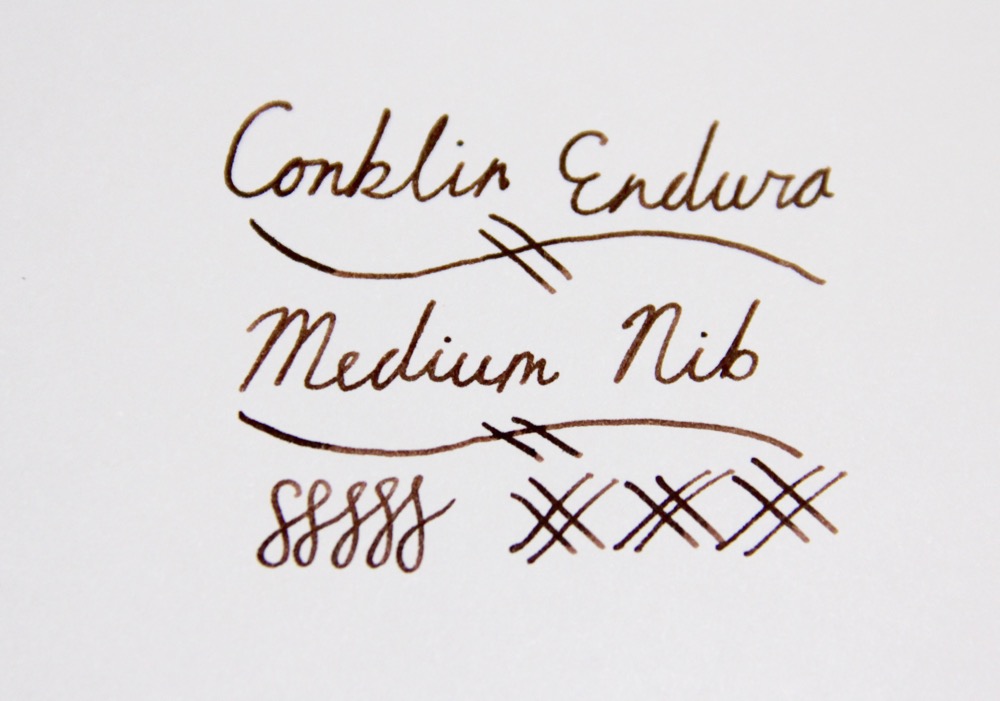 Conklin Endura
Medium Nib